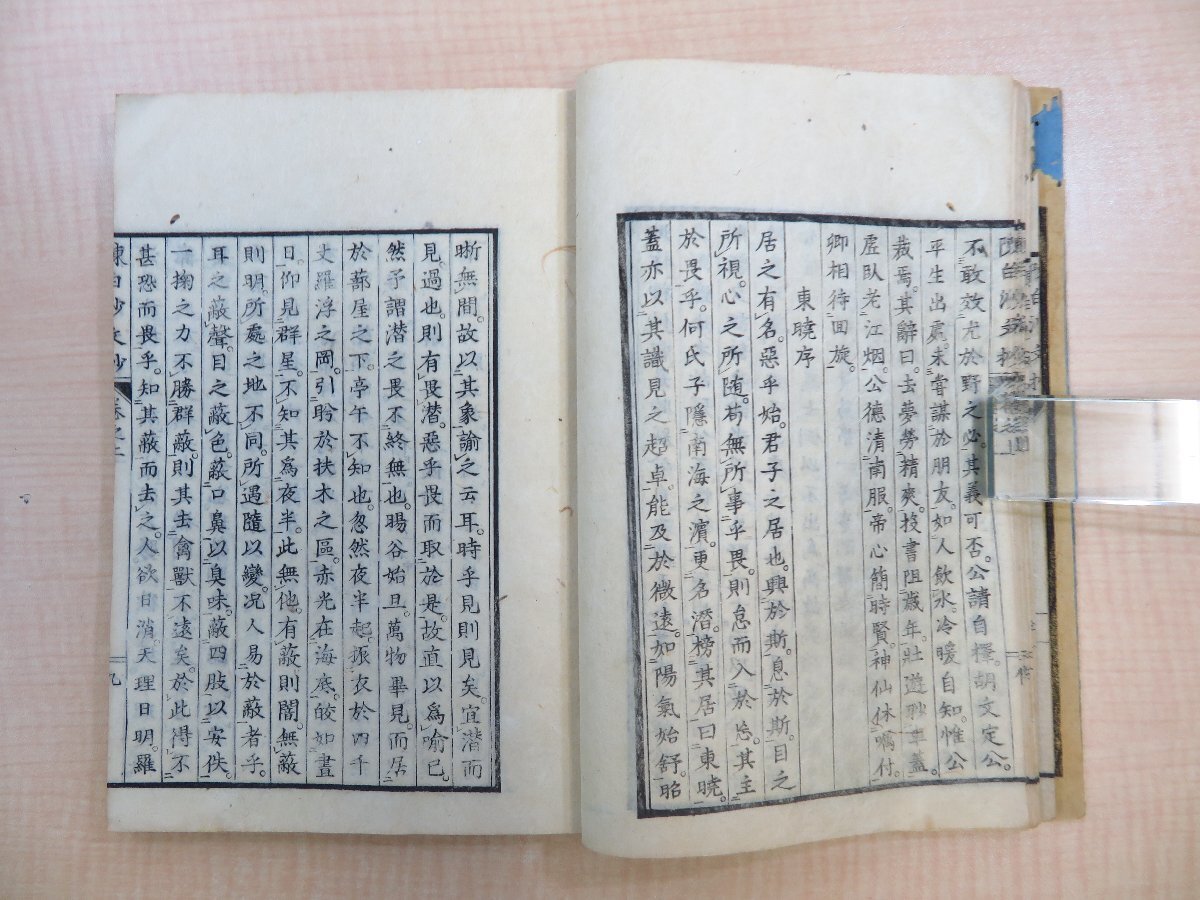 不敢效尤於野之必。其義可否。公請自擇。胡文定公。
平生出處。未嘗謀於朋友。如人飲水。冷暖自知。惟公
裁焉。其辭曰。去夢勞精爽。技書阻歲年。壯遊
虛臥老江烟。公德清南服。帝心簡時賢。神仙休囑付。
卿相待回旋。
東曉序
居之有名。惡乎始。君子之居也。興於斯。息於斯。目之
所視。心之所隨。苟無所事乎畏。則怠而入於忘。其主
於畏乎。何氏子隱南海之濱。更名潛。榜其居曰東曉。
蓋亦以其識見之超卓。能及於微遠。如陽氣始舒。昭
晰無間。故以其象諭之云耳。時乎見則見矣。宜潛而
見。過也。則有畏潛。惡乎畏而取於是。故直以為喻已。
然予謂潛之畏不終無也。暘谷始旦。萬物畢見。而居
於蔀屋之下。亭午不知也。忽然夜半起。振衣於四千
丈羅浮之岡。引盻於扶木之區。赤光在海底。皎如晝
日。仰見群星。不知其為夜半。此無他。有蔽則闇。無蔽
則明。所處之地不同。所遇隨以變。况人易於蔽者乎。
耳之蔽聲。目之蔽色。蔽口鼻以臭味。蔽四肢以安佚。
一掬之力不勝群蔽。則其去禽獸不遠矣。於此得不
甚恐而畏乎。知其蔽而去之。人欲日消。天理日明。羅
卷之二
九